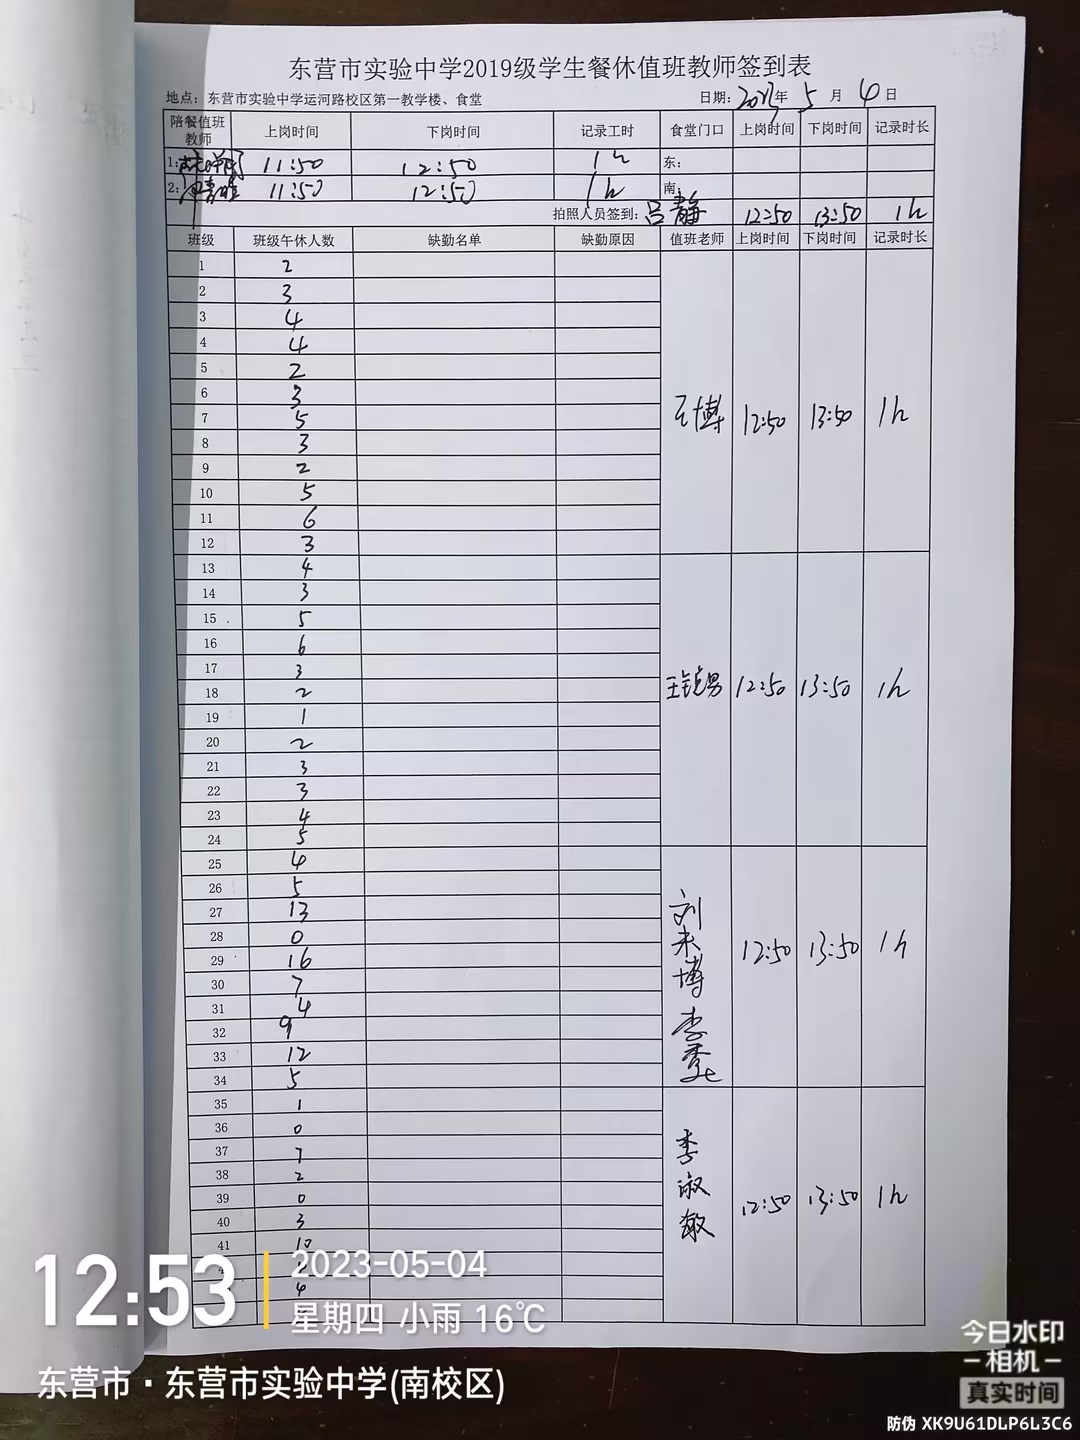 东营市实验中学2019级学生餐休值班教师签到表
地点：东营市实验中学运河路校区第一教学楼、食堂 日期：2023年 5 月 4 日
陪餐值班教师 上岗时间 下岗时间 记录工时 食堂门口 上岗时间 下岗时间 记录时长
1: 11:50 12:50 1h 东：
2: 11:50 12:50 1h 南：
拍照人员签到：吕静 12:50 13:50 1h
班级 班级午休人数 缺勤名单 缺勤原因 值班老师 上岗时间 下岗时间 记录时长
1 2
2 3
3 4
4 4
5 2
6 3
7 5
王博 12:50 13:50 1h
8 3
9 2
10 5
11 6
12 3
13 4
14 3
15 5
16 6
17 3
18 2
王 男 12:50 13:50 1h
19 1
20 2
21 3
22 3
23 4
24 5
25 4
26 5
27 13
28 0
29 16
刘 博 李 12:50 13:50 1h
30 7
31 4
32 9
33 12
34 5
35 1
36 0
37 7
38 2
39 0
李淑敏 12:50 13:50 1h
40 3
41 10
4
12:53
2023-05-04
星期四 小雨 16℃
东营市·东营市实验中学(南校区)
今日水印
相机
真实时间
防伪 XK9U61DLP6L3C6